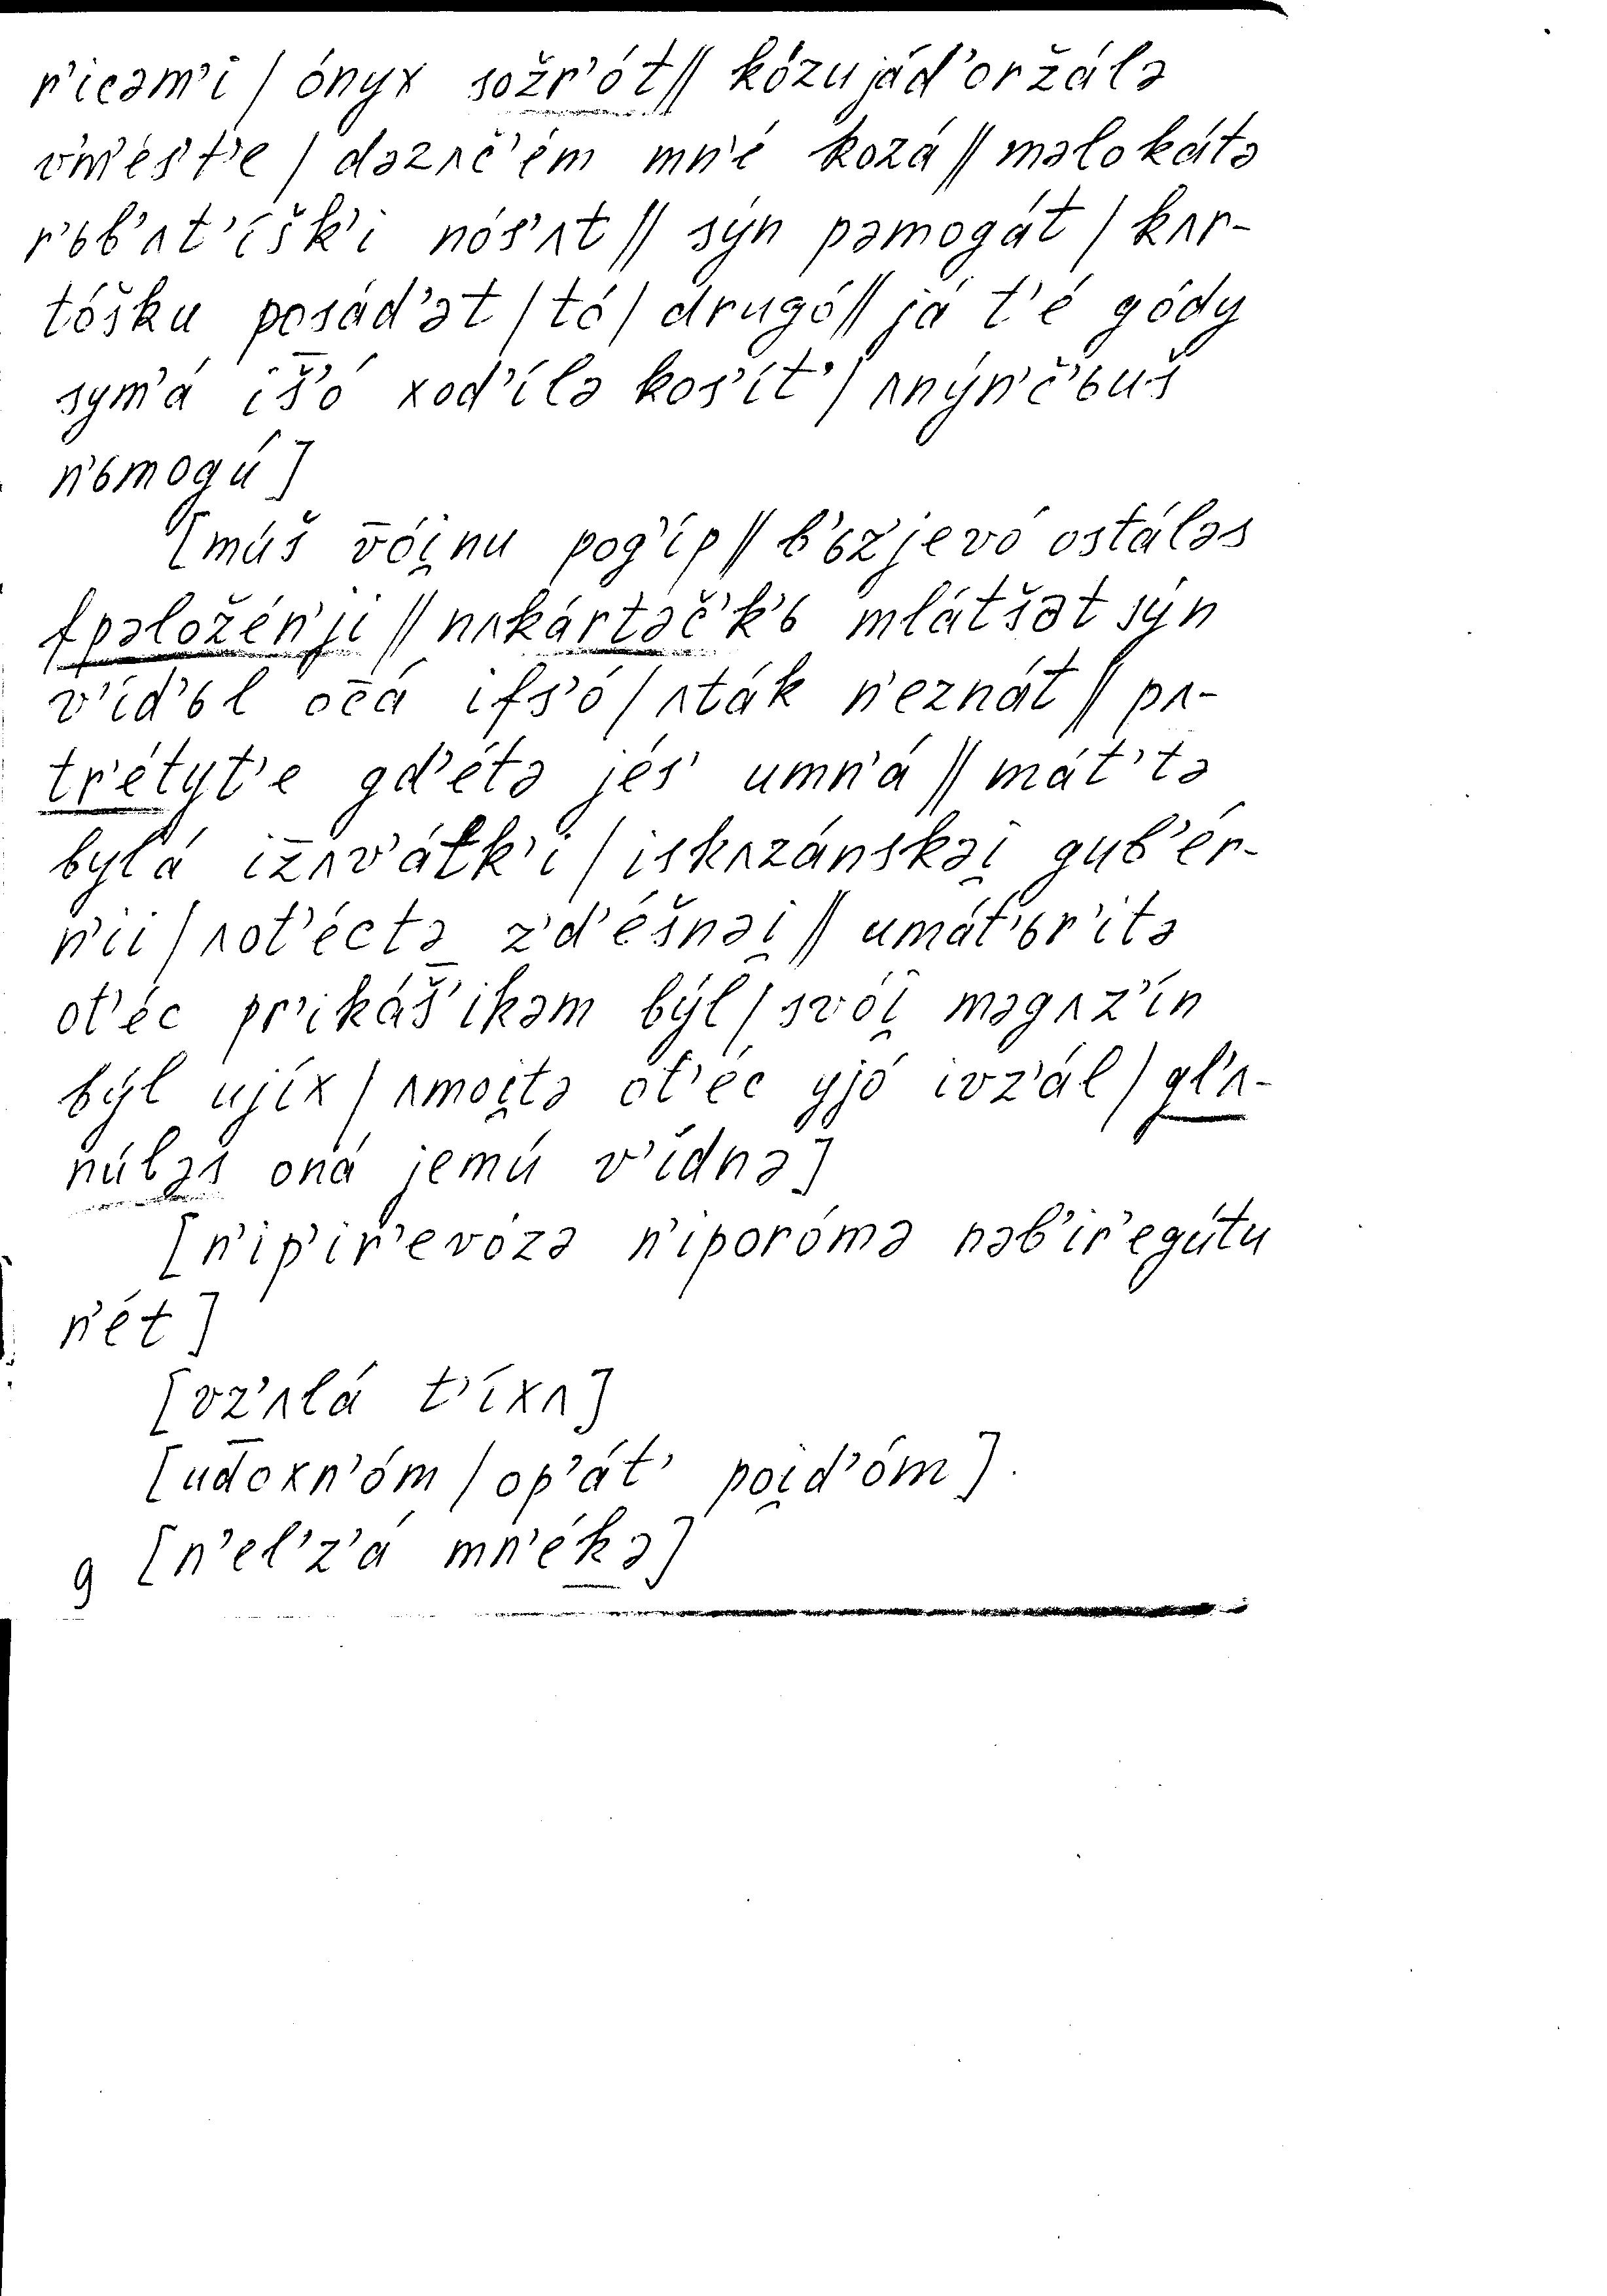 r’icəm’i / ónyx sožr’ót // kózu já d’oržálə
vm’és’t’e / dəzʌč’ém mn’é kozá // məlokátə
r’ьb’ʌt’íšk’i nós’ʌt // sýn pəmogát / kʌr-
tóšku posád’ət / tó / drugó // já t’é gódy
sym’á iš̄’ó xod’ílə kos’ít’ / ʌnýn’č’ьuš
n’ьmogú]
[múš v̄ói̯nu pog’íp // b’ьz’jevó ostáləs
fpəložén’ji // nʌkártəč’k’ь mlátšət sýn
v’íd’ьl oc̄á ifs’ó / ʌták n’eznát // pʌ-
tr’étyt’e gd’étə jés’ umn’á // mát’tə
bylá iz̄ʌv’átk’i / iskʌzánskəi̯ gub’ér-
n’ii / ʌot’éctə z’d’éšnəi̯ // umát’ьr’itə
ot’éc pr’ikáš̄’ikəm býl / svói̯ məgʌz’ín
býl ujíx / ʌmoi̯tə ot’éc yjó ivz’ál / gl’ʌ-
núləs oná jemú v’ídnə]
[n’ip’ir’evózə n’iporómə nəb’ir’egútu
n’ét]
[vz’ʌlá t’íxʌ]
[ud̄oxn’óm / op’át’ poi̯d’óm].
g [n’el’z’á mn’ékə]